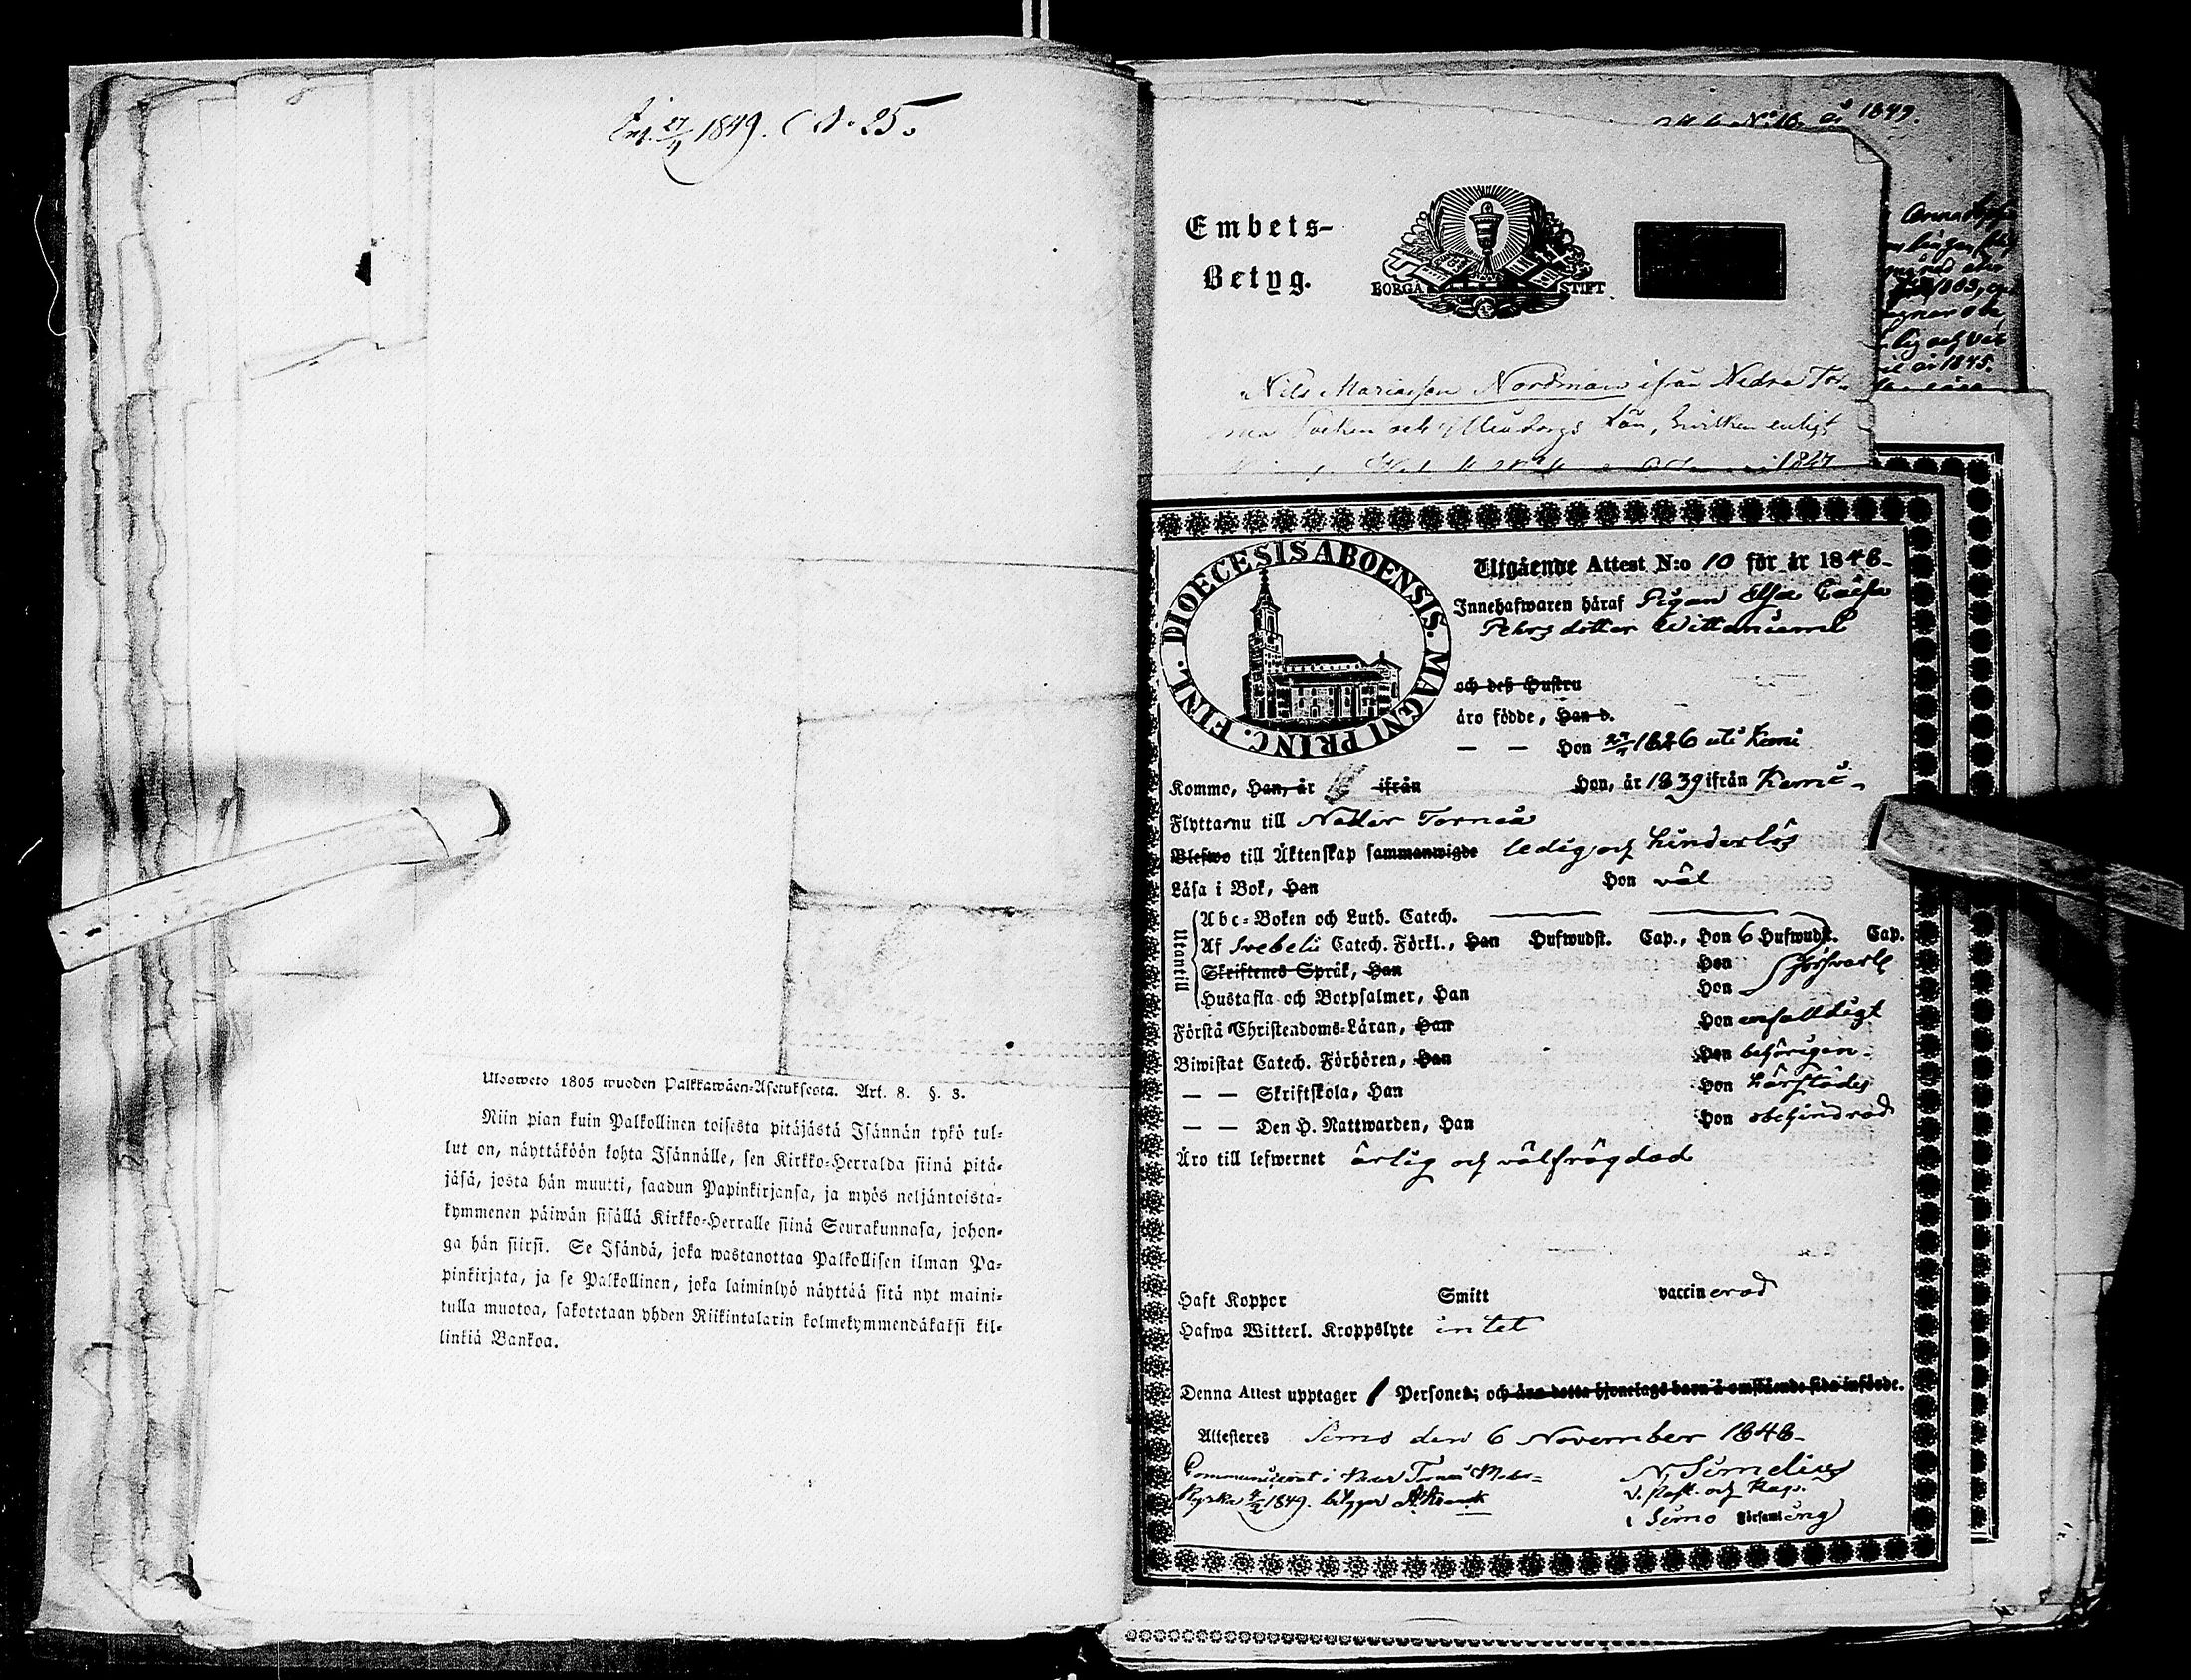 Inf. 27/4 1849. (No 25.
Ulosweto 1805 wuoden Palkkawäen-Asetuksesta. Art. 8. §. 3.
Niin pian kuin Palkollinen toisesta pitäjästä Isännän tykö tul-
lut on, näyttäköön kohta Isännälle, sen Kirkko-Herralda siinä pitä-
jäsä, josta hän muutti, saadun Papinkirjansa, ja myös neljäntoista-
kymmenen päiwän sisällä Kirkko-Herralle siinä Seurakunnasa, johon-
ga hän siirsi. Se Isändä, joka wastanottaa Palkollisen ilman Pa-
pinkirjata, ja se Palkollinen, joka laiminlyö näyttää sitä nyt maini-
tulla muotoa, sakotetaan yhden Riikintalarin kolmekymmendäkaksi kil-
linkiä Bankoa.
No 16. år 1849.
Embets-
Betyg.
BORGÅ STIFT
Nils Mariasson Nordman ifrån Nedra Tor-
neå Socken och Uleåborgs Län, hvilken enligt
1847
år 1845.
DIOECESIS ABOENSIS. MAGNI PRINC. FINL.
Utgående Attest N:o 10 för år 1848.
Innehafwaren häraf Pigan Elsa Caisa
Pehrsdotter Wittaniemi
och deß Hustru
äro födde, Han d.
— — Hon 27/4 1826 uti Kemi
Kommo, Han, år ifrån Hon, år 1839 ifrån Kemi
Flyttar nu till Neder Torneå
Blefwo till Äktenskap sammanwigde ledig och hinderlös
Läsa i Bok, Han Hon väl
Utantill
Abc-Boken och Luth. Catech.
Af Svebelii Catech. Förkl., Han Hufwudst. Cap., Hon 6 Hufwudst. Cap.
Skriftenes Språk, Han Hon försvarl
Hustafla och Botpsalmer, Han Hon
Förstå Christendoms-Läran, Han Hon enfalldigt
Biwistat Catech. Förhören, Han Hon behörigen
— — Skriftskola, Han Hon härstädes
— — Den H. Nattwarden, Han Hon obehindrad
Äro till lefwernet ärlig och välfrägdad
Haft Koppor Smitt vaccinerad
Hafwa Witterl. Kroppslyte intet
Denna Attest upptager 1 Personer; och äro detta hjonelags barn å omstående sida införde.
Attesteres Simo den 6 November 1848.
Communicerat i Neder Torneå Moder-
Kyrka 4/2 1849. betygar
N. Simelius
V. Past. och Kap.
i Simo Församling